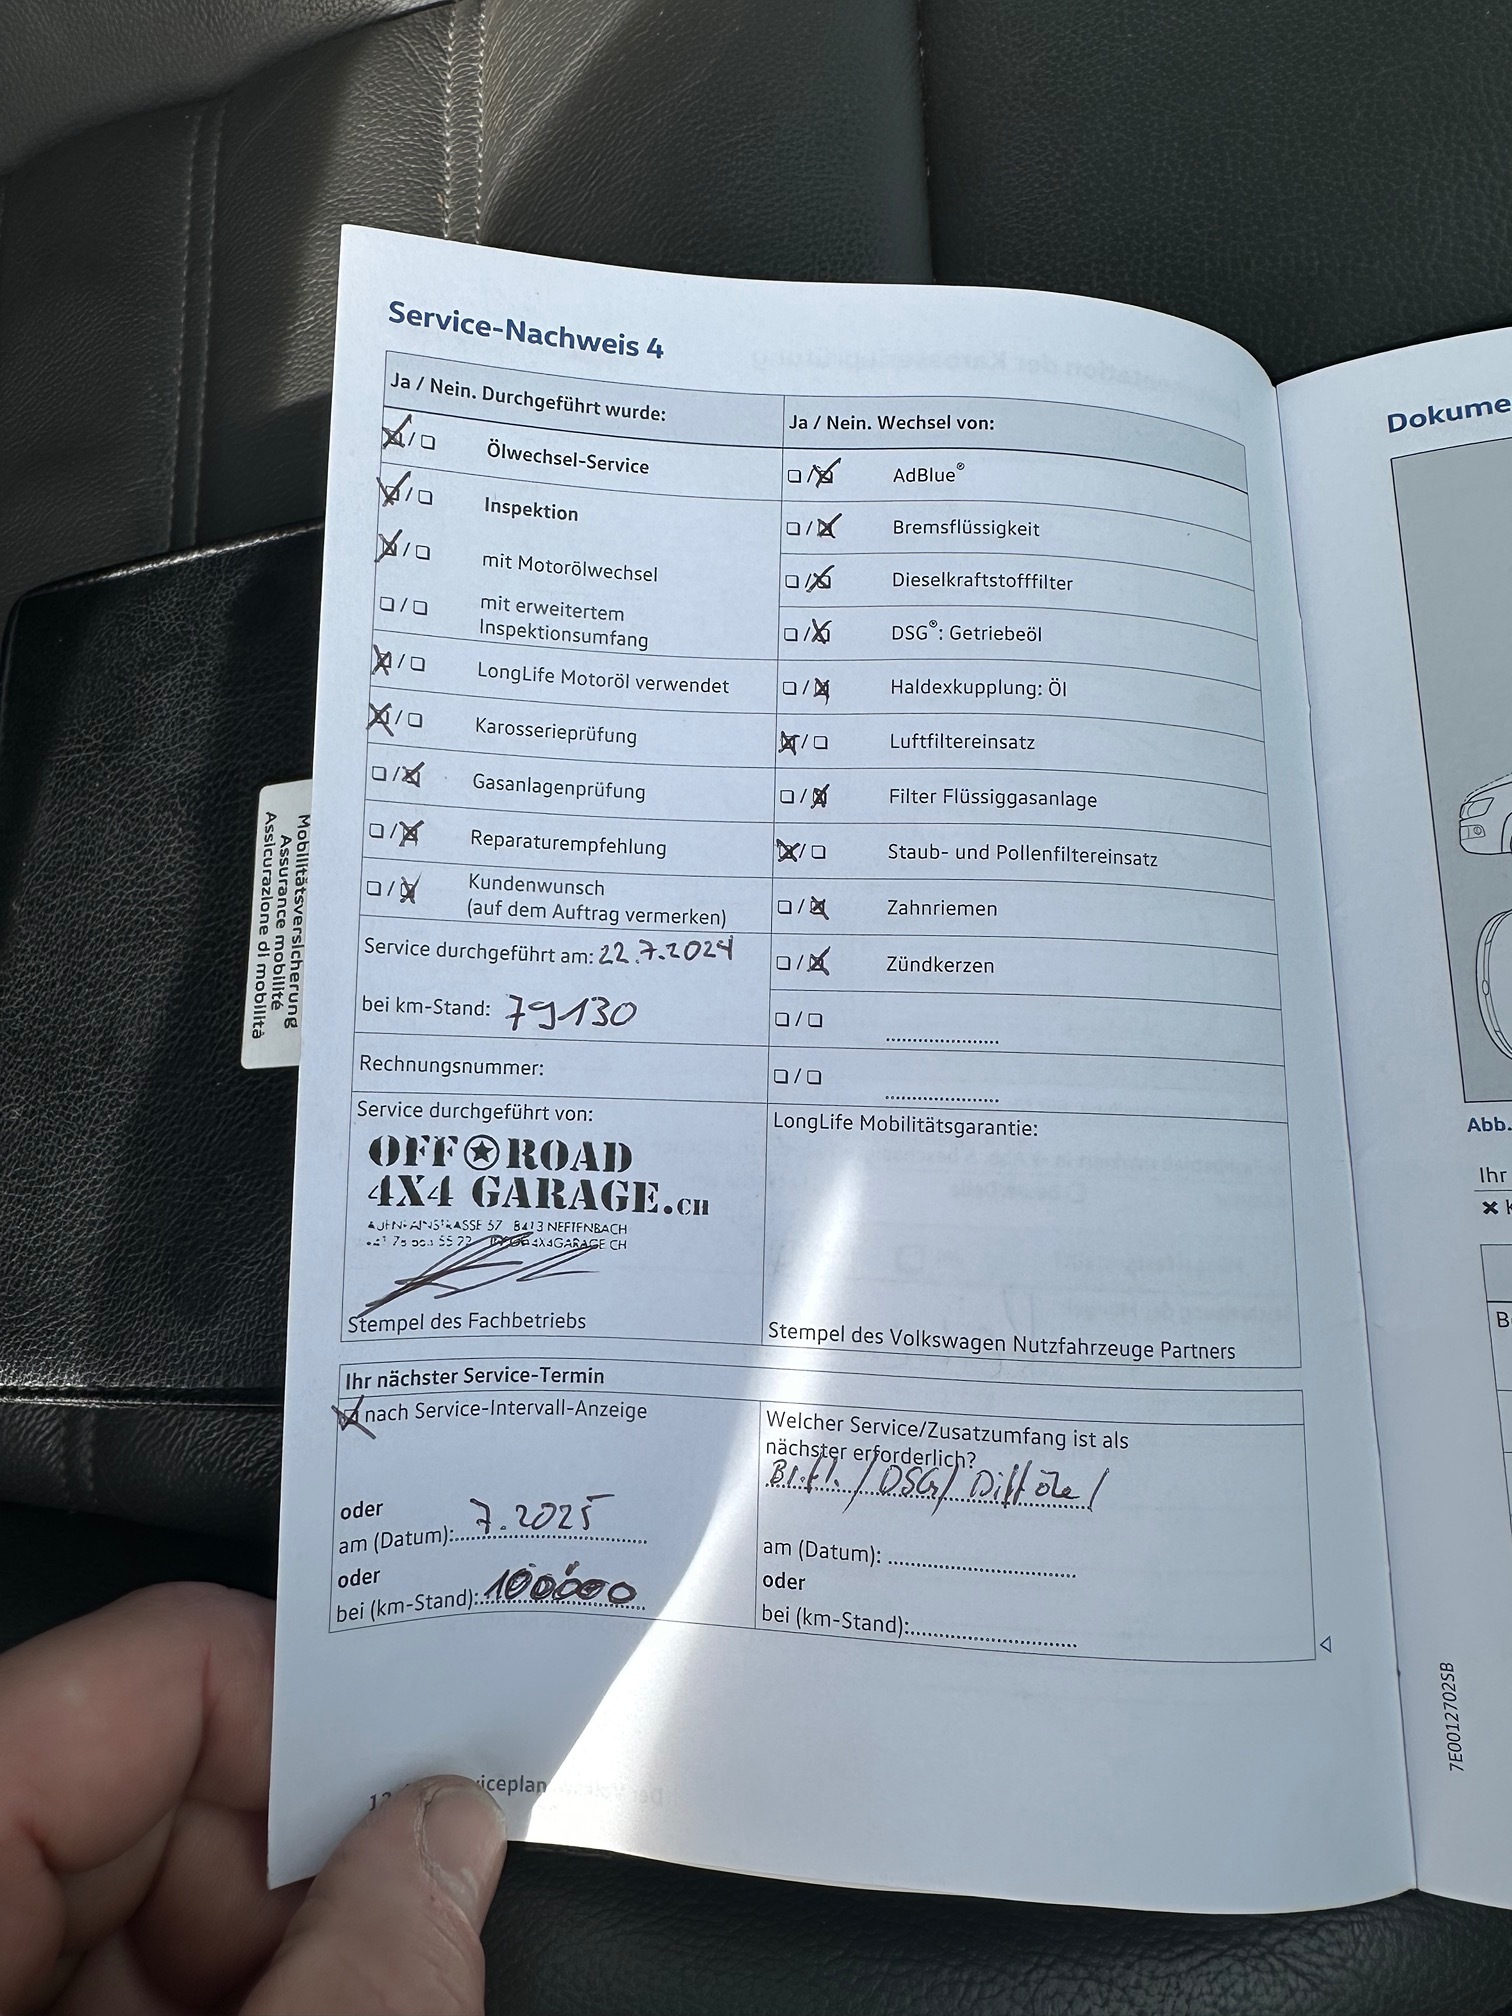 Service-Nachweis 4
Ja / Nein. Durchgeführt wurde:
Ölwechsel-Service
Inspektion
mit Motorölwechsel
mit erweitertem
Inspektionsumfang
LongLife Motoröl verwendet
Karosserieprüfung
Gasanlagenprüfung
Reparaturempfehlung
Kundenwunsch
(auf dem Auftrag vermerken)
Service durchgeführt am: 22.7.2024
bei km-Stand: 79130
Rechnungsnummer:
Service durchgeführt von:
OFF ROAD
4X4 GARAGE.CH
57 8413 NEFTENBACH
4X4GARAGE CH
Stempel des Fachbetriebs
Ja / Nein. Wechsel von:
AdBlue®
Bremsflüssigkeit
Dieselkraftstofffilter
DSG®: Getriebeöl
Haldexkupplung: Öl
Luftfiltereinsatz
Filter Flüssiggasanlage
Staub- und Pollenfiltereinsatz
Zahnriemen
Zündkerzen
LongLife Mobilitätsgarantie:
Stempel des Volkswagen Nutzfahrzeuge Partners
Ihr nächster Service-Termin
nach Service-Intervall-Anzeige
oder
am (Datum): 7.2025
oder
bei (km-Stand): 100000
Welcher Service/Zusatzumfang ist als
nächster erforderlich?
Br.fl. / DSG / Diff öle /
am (Datum):
oder
bei (km-Stand):
iceplan
Mobilitätsversicherung
Assurance mobilité
Assicurazione di mobilità
Dokume
Abb.
Ihr
7E0012702SB